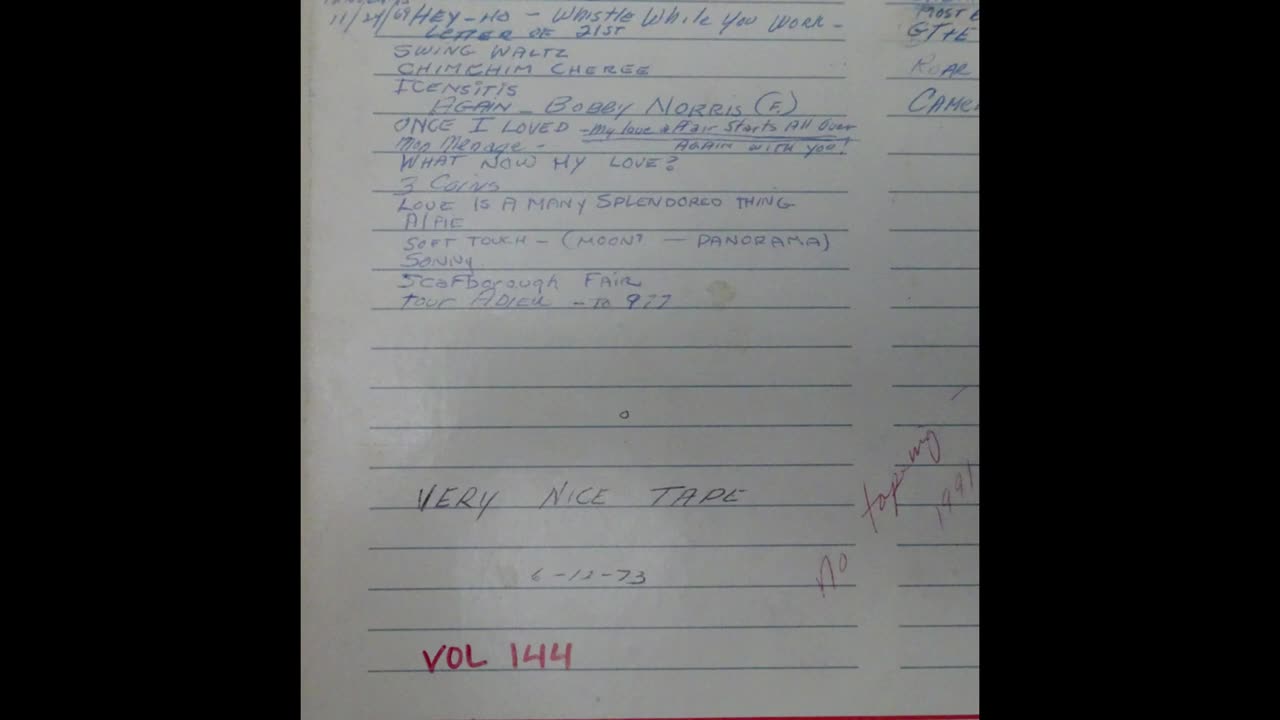 11/24/69 HEY-HO - Whistle While You Work -
LETTER OF 21ST
SWING WALTZ
CHIMCHIM CHEREE
ICENSITIS
AGAIN - BOBBY NORRIS (F.)
ONCE I LOVED - My love affair Starts All Over
Mon Menage - AGAIN WITH YOU!
WHAT NOW MY LOVE?
3 Coins
LOVE IS A MANY SPLENDORED THING
AlFIE
SOFT TOUCH - (MOON? - PANORAMA)
SONNY
Scarborough FAIR
TOUR ADIEU - TO 977
VERY NICE TAPE
6-12-73
VOL 144
MOST
GT+E
ROAR
no taping 1991